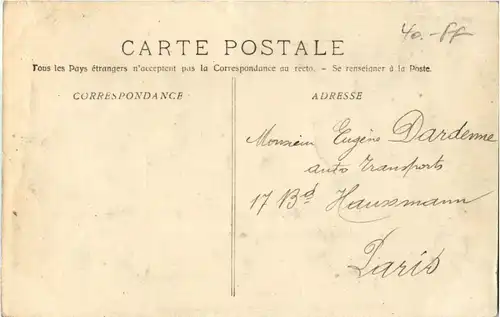 40.-FF
CARTE POSTALE
Tous les Pays étrangers n'acceptent pas la Correspondance au recto. - Se renseigner à la Poste.
CORRESPONDANCE
ADRESSE
Monsieur Eugène Dardenne
auto Transports
17 Bd Haussmann
Paris